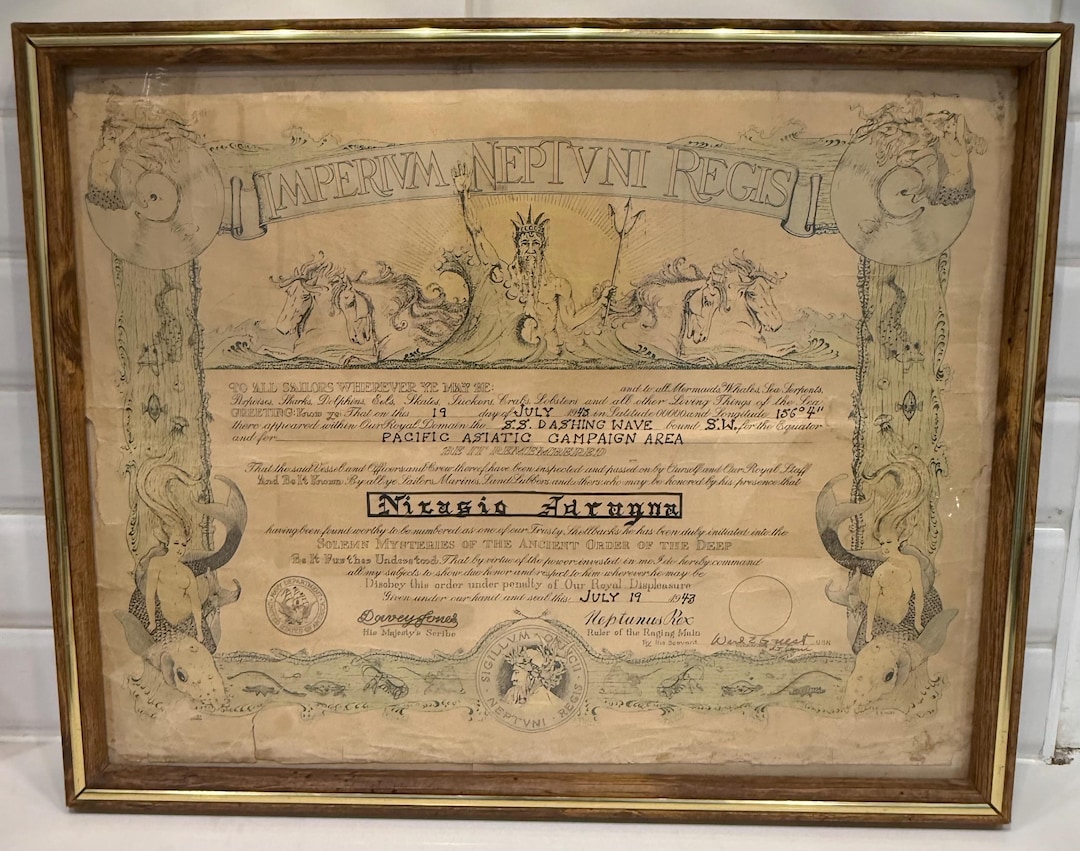 IMPERIVM NEPTVNI REGIS
TO ALL SAILORS WHEREVER YE MAY BE: and to all Mermaids, Whales, Sea Serpents,
Porpoises, Sharks, Dolphins, Eels, Skates, Suckers, Crabs, Lobsters and all other Living Things of the Sea
GREETING: Know ye: That on this 19 day of JULY 1943 in Latitude 00000 and Longitude 156° 4"
there appeared within Our Royal Domain the S.S. DASHING WAVE bound S.W. for the Equator
and for PACIFIC ASIATIC CAMPAIGN AREA
BE IT REMEMBERED
That the said Vessel and Officers and Crew thereof have been inspected and passed on by Ourself and Our Royal Staff
And Be It Known: By all ye Sailors, Marines, Land Lubbers and others who may be honored by his presence that
Nicasio Adragna
having been found worthy to be numbered as one of our Trusty Shellbacks he has been duly initiated into the
SOLEMN MYSTERIES OF THE ANCIENT ORDER OF THE DEEP
Be It Further Understood: That by virtue of the power invested in me I do hereby command
all my subjects to show due honor and respect to him wherever he may be
Disobey this order under penalty of Our Royal Displeasure
Given under our hand and seal this JULY 19 1943
Davey Jones
His Majesty's Scribe
Neptunus Rex
Ruler of the Raging Main
By His Servant
U.S.N.
SIGILLVM · QVIGI · NEPTVNI · REGIS